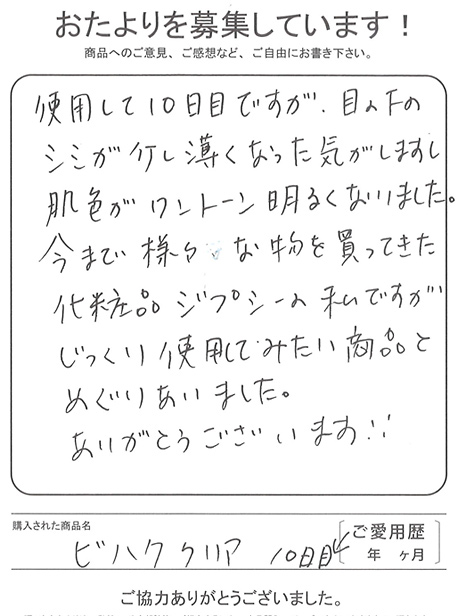 おたよりを募集しています！
商品へのご意見、ご感想など、ご自由にお書き下さい。
使用して10日目ですが、目の下の
シミが少し薄くなった気がしますし
肌色がワントーン明るくないました。
今まで様々な物を買ってきた
化粧品ジプシーの私ですが
じっくり使用してみたい商品と
めぐりあいました。
ありがとうございます!!
購入された商品名
ご愛用歴
ビハククリア 10日目
年 ヶ月
ご協力ありがとうございました。